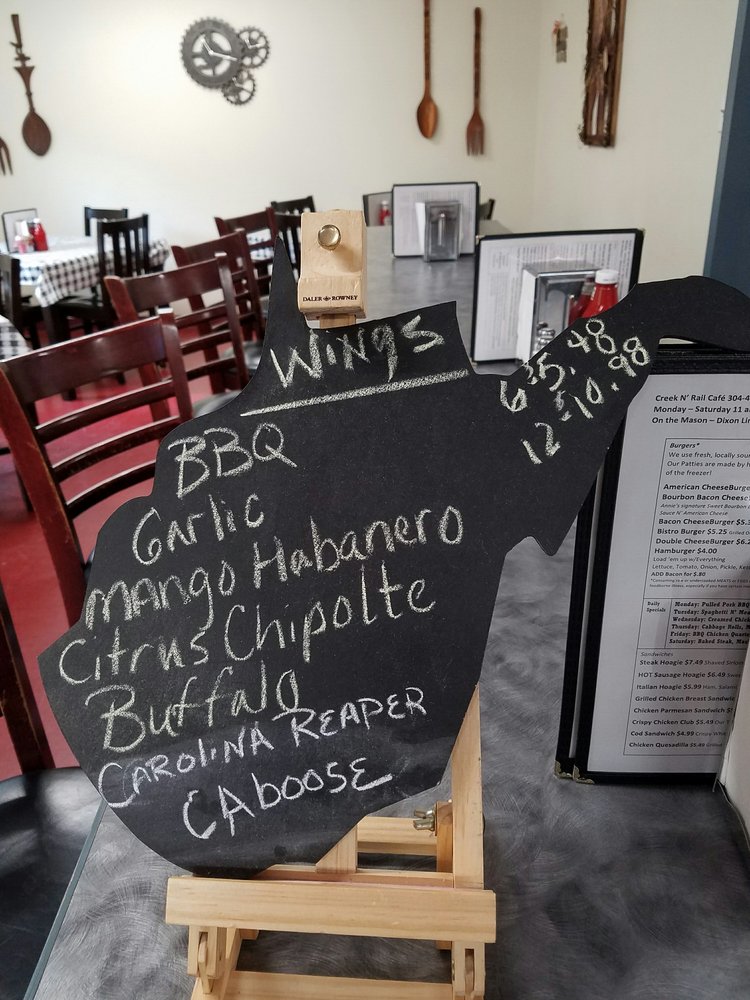 DALER ROWNEY
Wings
6 - 5.48
12 - 10.98
BBQ
Garlic
Mango Habanero
Citrus Chipolte
Buffalo
CAROLINA REAPER
CABOOSE
Creek N' Rail Café 304-4
Monday – Saturday 11 a
On the Mason – Dixon Lin
Burgers*
We use fresh, locally sour
Our Patties are made by h
of the freezer!
American CheeseBurge
Bourbon Bacon Chees
Annie's signature Sweet Bourbon
Sauce N' American Cheese
Bacon CheeseBurger $5.
Bistro Burger $5.25 Grilled O
Double CheeseBurger $6.2
Hamburger $4.00
Load 'em up w/everything
Lettuce, Tomato, Onion, Pickle, Ke
ADD Bacon for $.80
Daily
Specials
Monday: Pulled Pork BBQ
Tuesday: Spaghetti N' Me
Wednesday: Creamed Chick
Thursday: Cabbage Rolls, M
Friday: BBQ Chicken Quart
Saturday: Baked Steak, Mas
Sandwiches
Steak Hoagie $7.49 Shaved Sirloin
HOT Sausage Hoagie $6.49 Swee
Italian Hoagie $5.99 Ham, Salami
Grilled Chicken Breast Sandwic
Chicken Parmesan Sandwich $
Crispy Chicken Club $5.49 Our T
Cod Sandwich $4.99 Crispy Whit
Chicken Quesadilla $5.49 Grilled